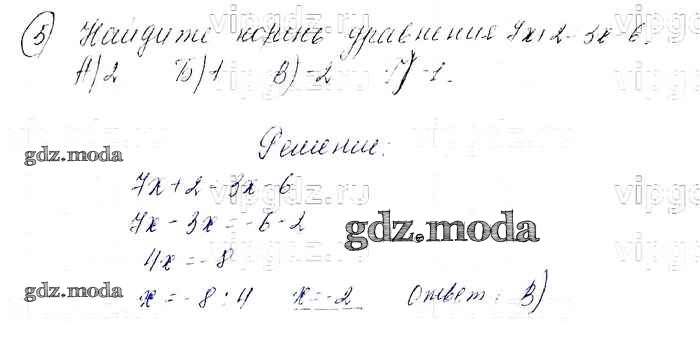 5) Найдите корень уравнения 7x+2=3x-6.
А) 2 Б) 1 В) -2 Г) -1.
Решение:
gdz.moda
7x+2=3x-6
7x-3x=-6-2
gdz.moda
4x=-8
gdz.moda
x=-8:4 x=-2 Ответ: В)
vipgdz.ru